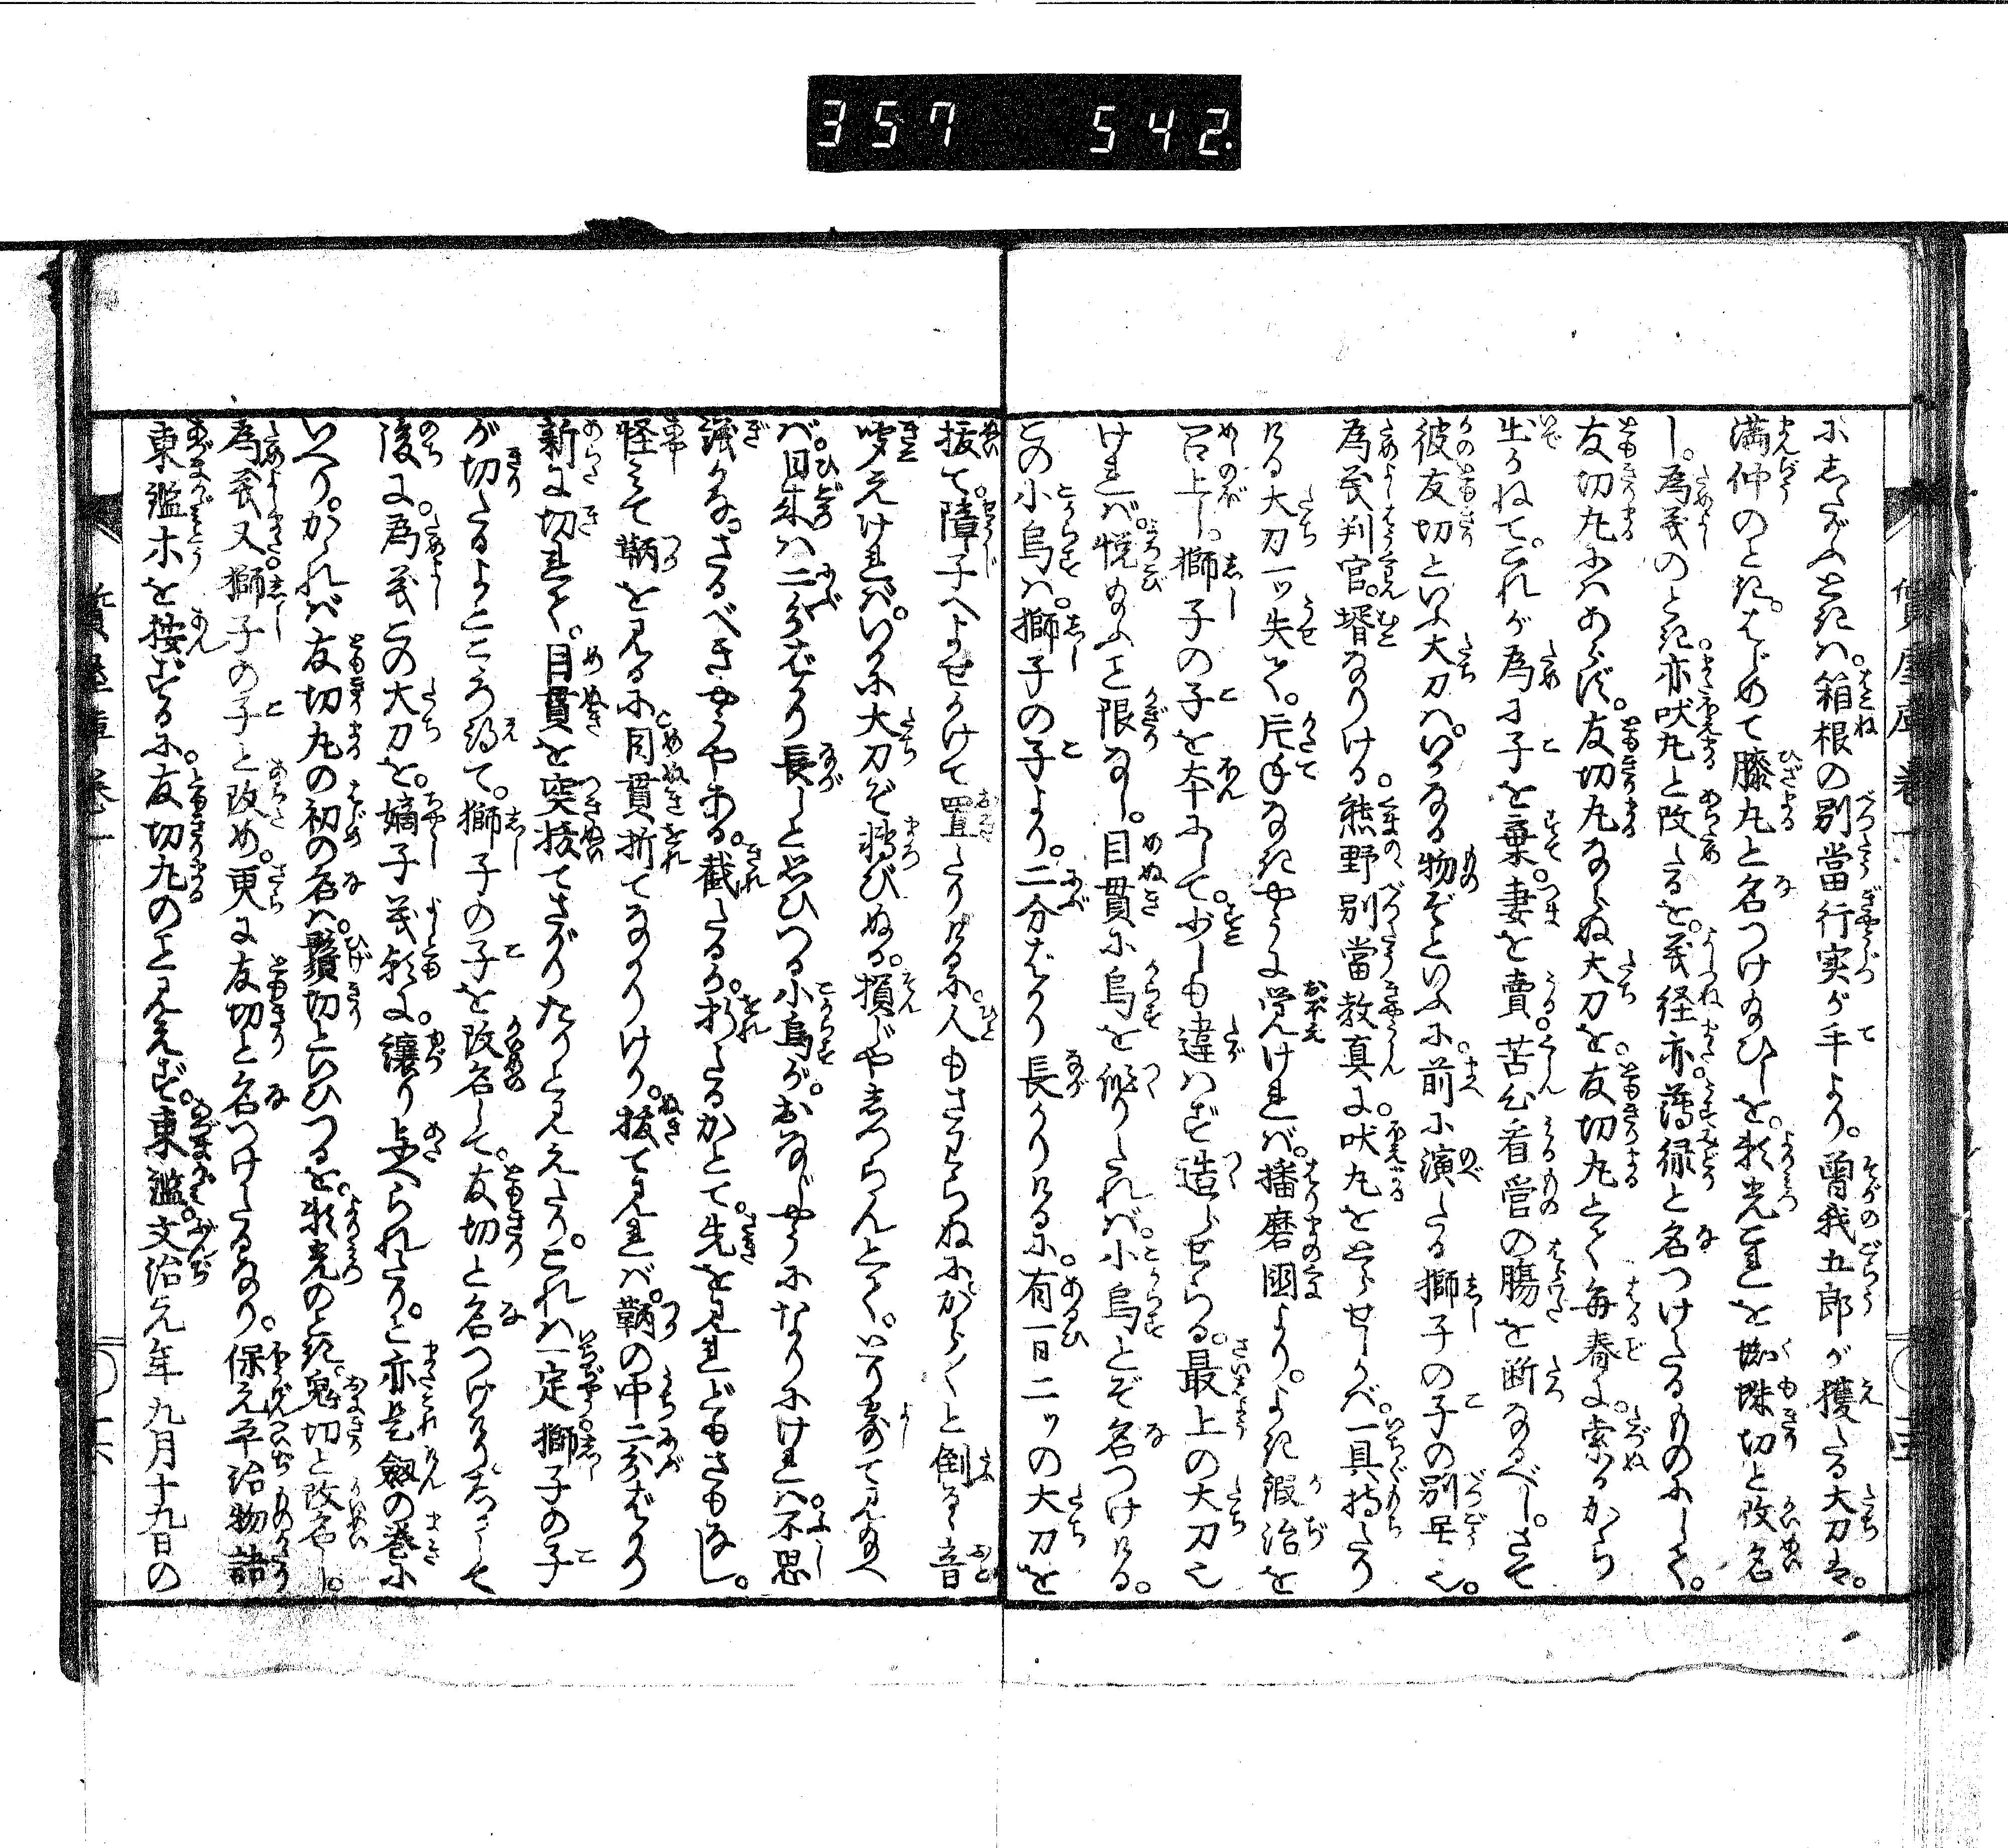 357 542.
にしたがふときハ。箱根の別當行実が手より。曽我五郎が獲たる大刀は。
満仲のとき。はじめて膝丸と名つけ給ひしを。頼光これを蜘蛛切と改名
し。為義のとき。亦吠丸と改たるを。義経亦。薄緑と名つけたるものにして。
友切丸にハあらず。友切丸ならぬ大刀を。友切丸とて毎春に。索るかたち
出かねて。これが為に子を棄。妻を賣。苦と看官の腸を断なるべし。さて
彼友切といふ大刀ハ。いかなる物ぞといふに。前に演たる獅子の子の別名也。
為義判官。壻なりける。熊野別當教真に。吠丸をとらせしかバ。一具持たり
ける大刀一ッ失て。片手なきやうに覚えければ。播磨國より。よき鍛冶を
召上し。獅子の子を本にして。少しも違ハず造らせらる。最上の大刀也
ければ。悦給ふこと限なし。目貫に烏を作りたれバ。小烏とぞ名つけける。
この小烏ハ。獅子の子より。二分ばかり長かりけるに。有一日二ッの大刀を
抜て。障子へよせかけて置たりけるに。人もさはらぬにからくと倒るゝ音
聞えければ。いかに大刀ぞ轉びぬる。損じやしつらんとて。とり寄て見給へ
バ。日來ハ二分ばかり長しと思ひつる小烏が。おなじやうになりにけれバ。不思
議かな。さるべきやうやある。截たるか。折たるかとて。先を見れどもさもなし。
怪みて鞆を見るに。目貫折てなかりけり。抜て見れバ。鞆の中二分ばかり
新に切れて。目貫を突抜てさがりたりと見えたり。これハ一定獅子の子
が切たるよとこころ得て。獅子の子を改名して。友切と名つけけり。かくして
後に。為義この大刀を。嫡子義朝に。讓り与へられたりと。亦是劔の巻に
いへり。かゝれバ友切丸の初の名ハ。鬚切といひつるを。頼光のとき。鬼切と改名し。
為義又。獅子の子と改め。更に友切と名つけたるなり。保元平治物語
東鑑ホを按ずるに。友切丸のこと見えず。東鑑。文治元年九月十九日の
質屋庫 巻一